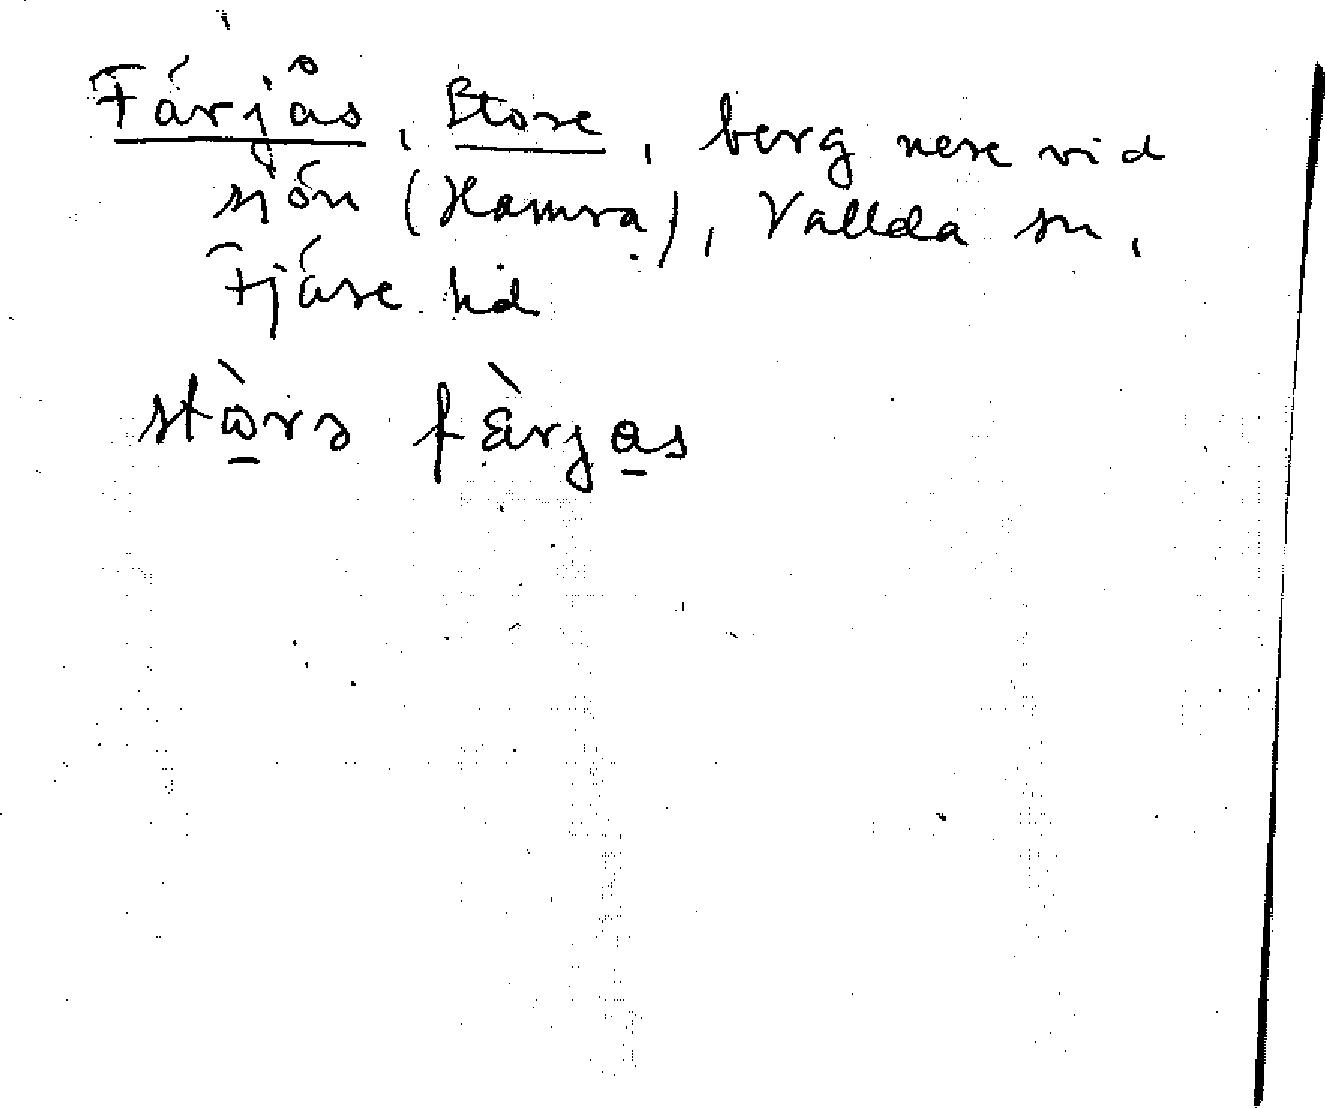 Färjås, Store, berg nere vid
sjön (Hamra), Vallda sn,
Fjäre hd
stὼrə fὲrjas